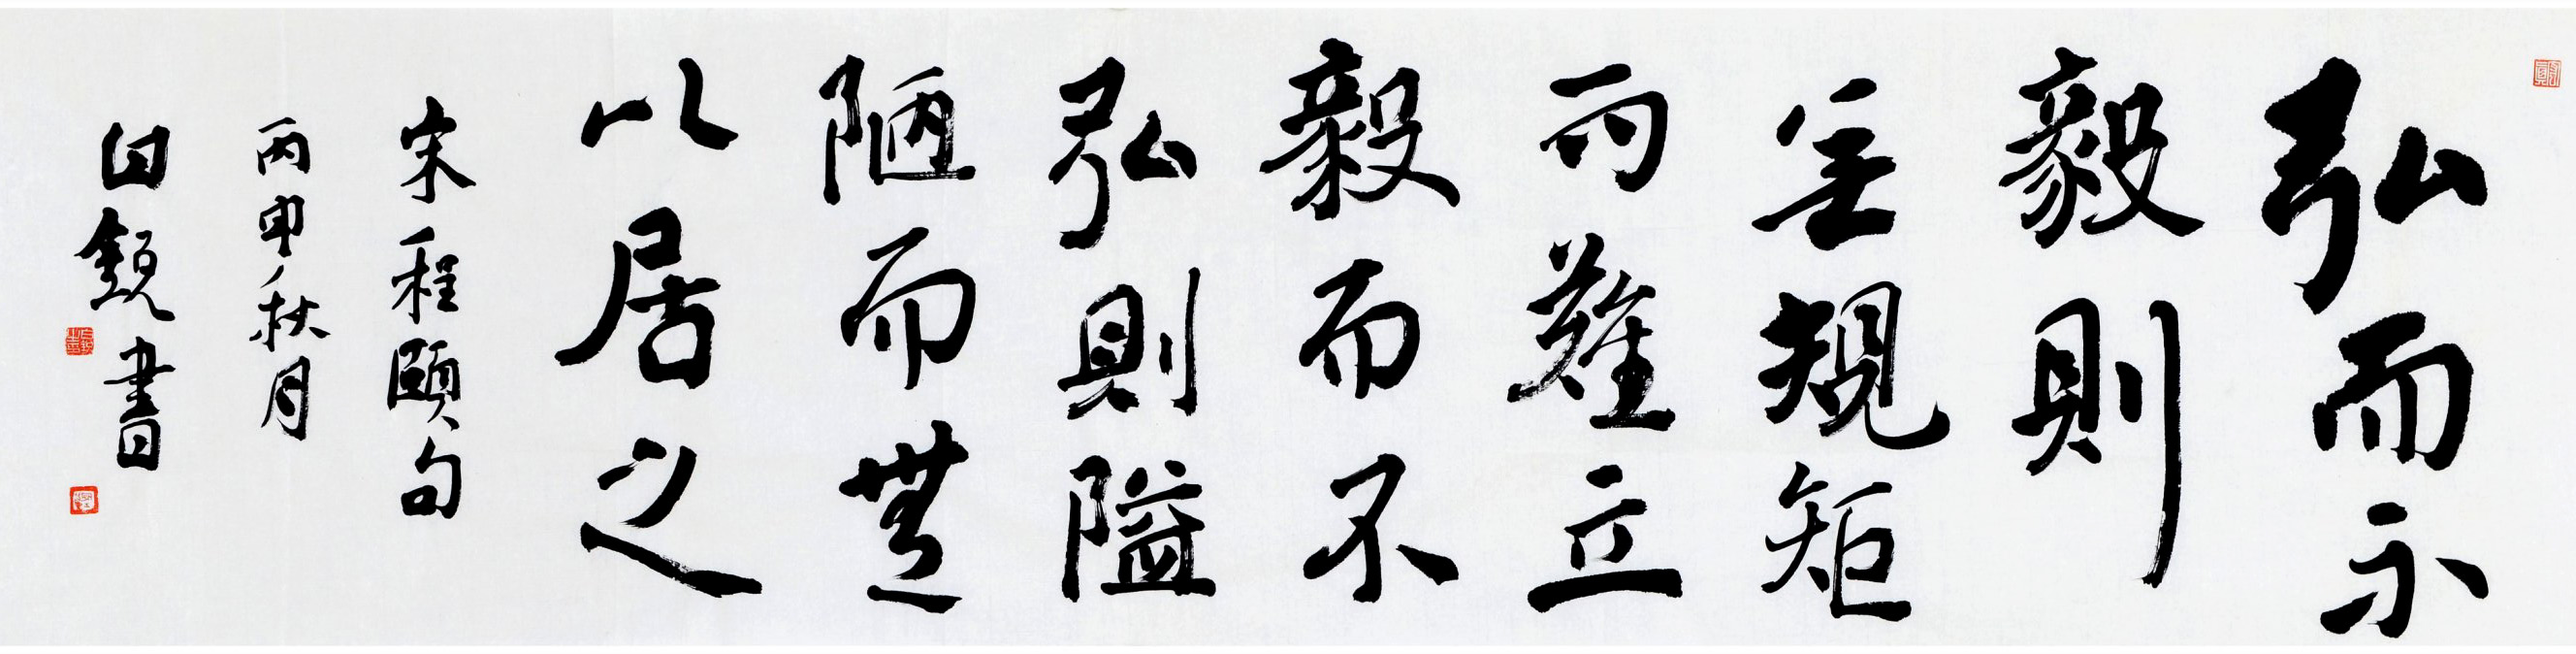 弘而不
毅則
無規矩
而難立
毅而不
弘則隘
陋而無
以居之
宋程頤句
丙申秋月
書